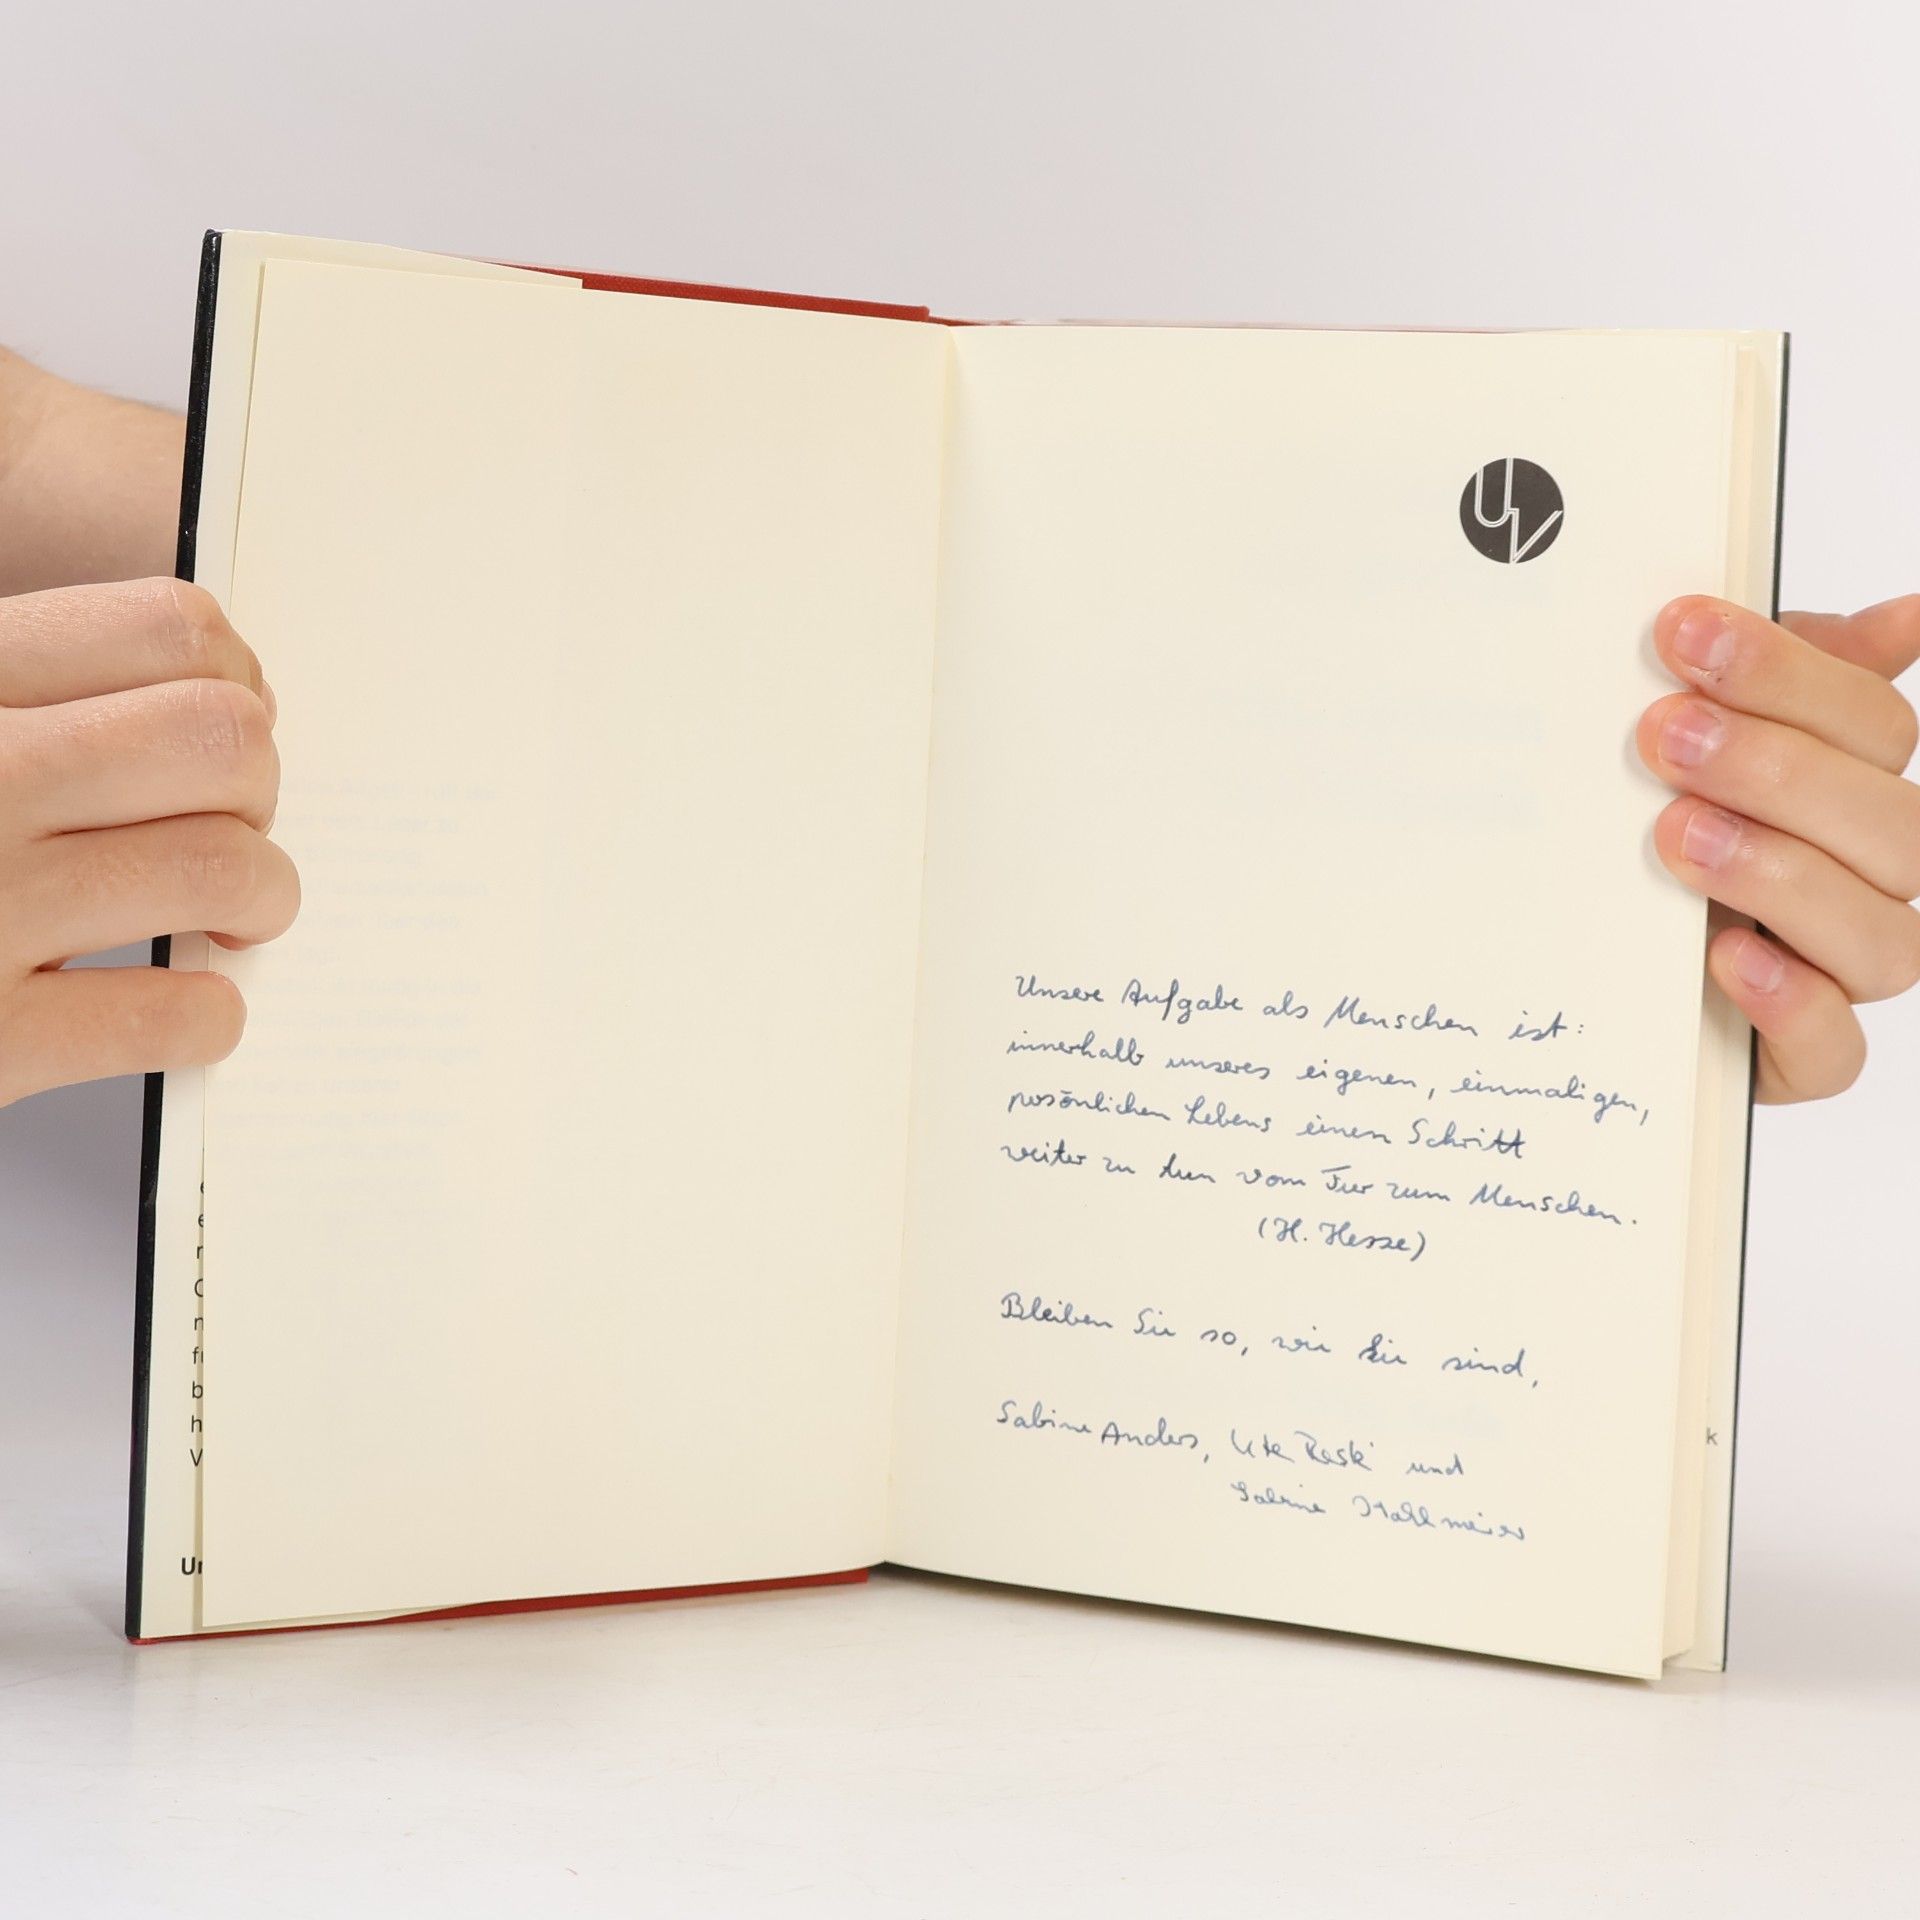 UV
Unsere Aufgabe als Menschen ist:
innerhalb unseres eigenen, einmaligen,
persönlichen Lebens einen Schritt
weiter zu tun vom Tier zum Menschen.
(H. Hesse)
Bleiben Sie so, wie Sie sind,
Sabine Anders, Ute Reski und
Sabine Stahlmeier